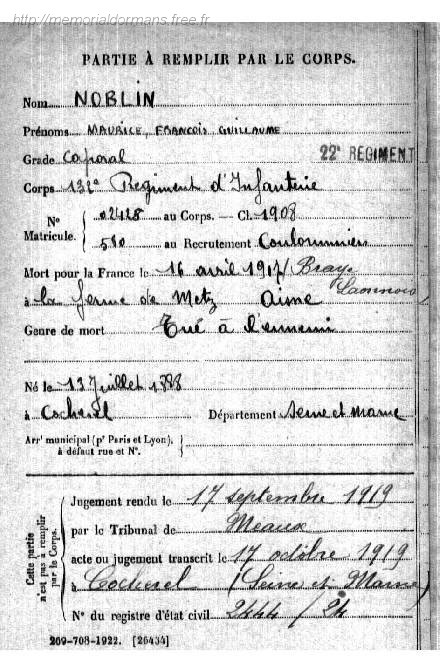 http://memorialdormans.free.fr
PARTIE À REMPLIR PAR LE CORPS.
Nom NOBLIN
Prénoms MAURICE, FRANCOIS GUILLAUME
Grade Caporal 22e REGIMENT
Corps 132e Regiment d'Infanterie
N° Matricule. { 02428 au Corps. — Cl. 1908
510 au Recrutement Coulommiers
Mort pour la France le 16 avril 1917 / Braye
à la ferme de Metz Aisne Laonnois
Genre de mort Tué à l'ennemi
Né le 13 Juillet 1888
à Cocherel Département Seine et Marne
Arrt municipal (pr Paris et Lyon),
à défaut rue et N°.
Cette partie n'est pas à remplir par le Corps.
Jugement rendu le 17 septembre 1919
par le Tribunal de Meaux
acte ou jugement transcrit le 17 octobre 1919
à Cocherel (Seine et Marne)
N° du registre d'état civil 2444 / 24
269-708-1922. [26434]